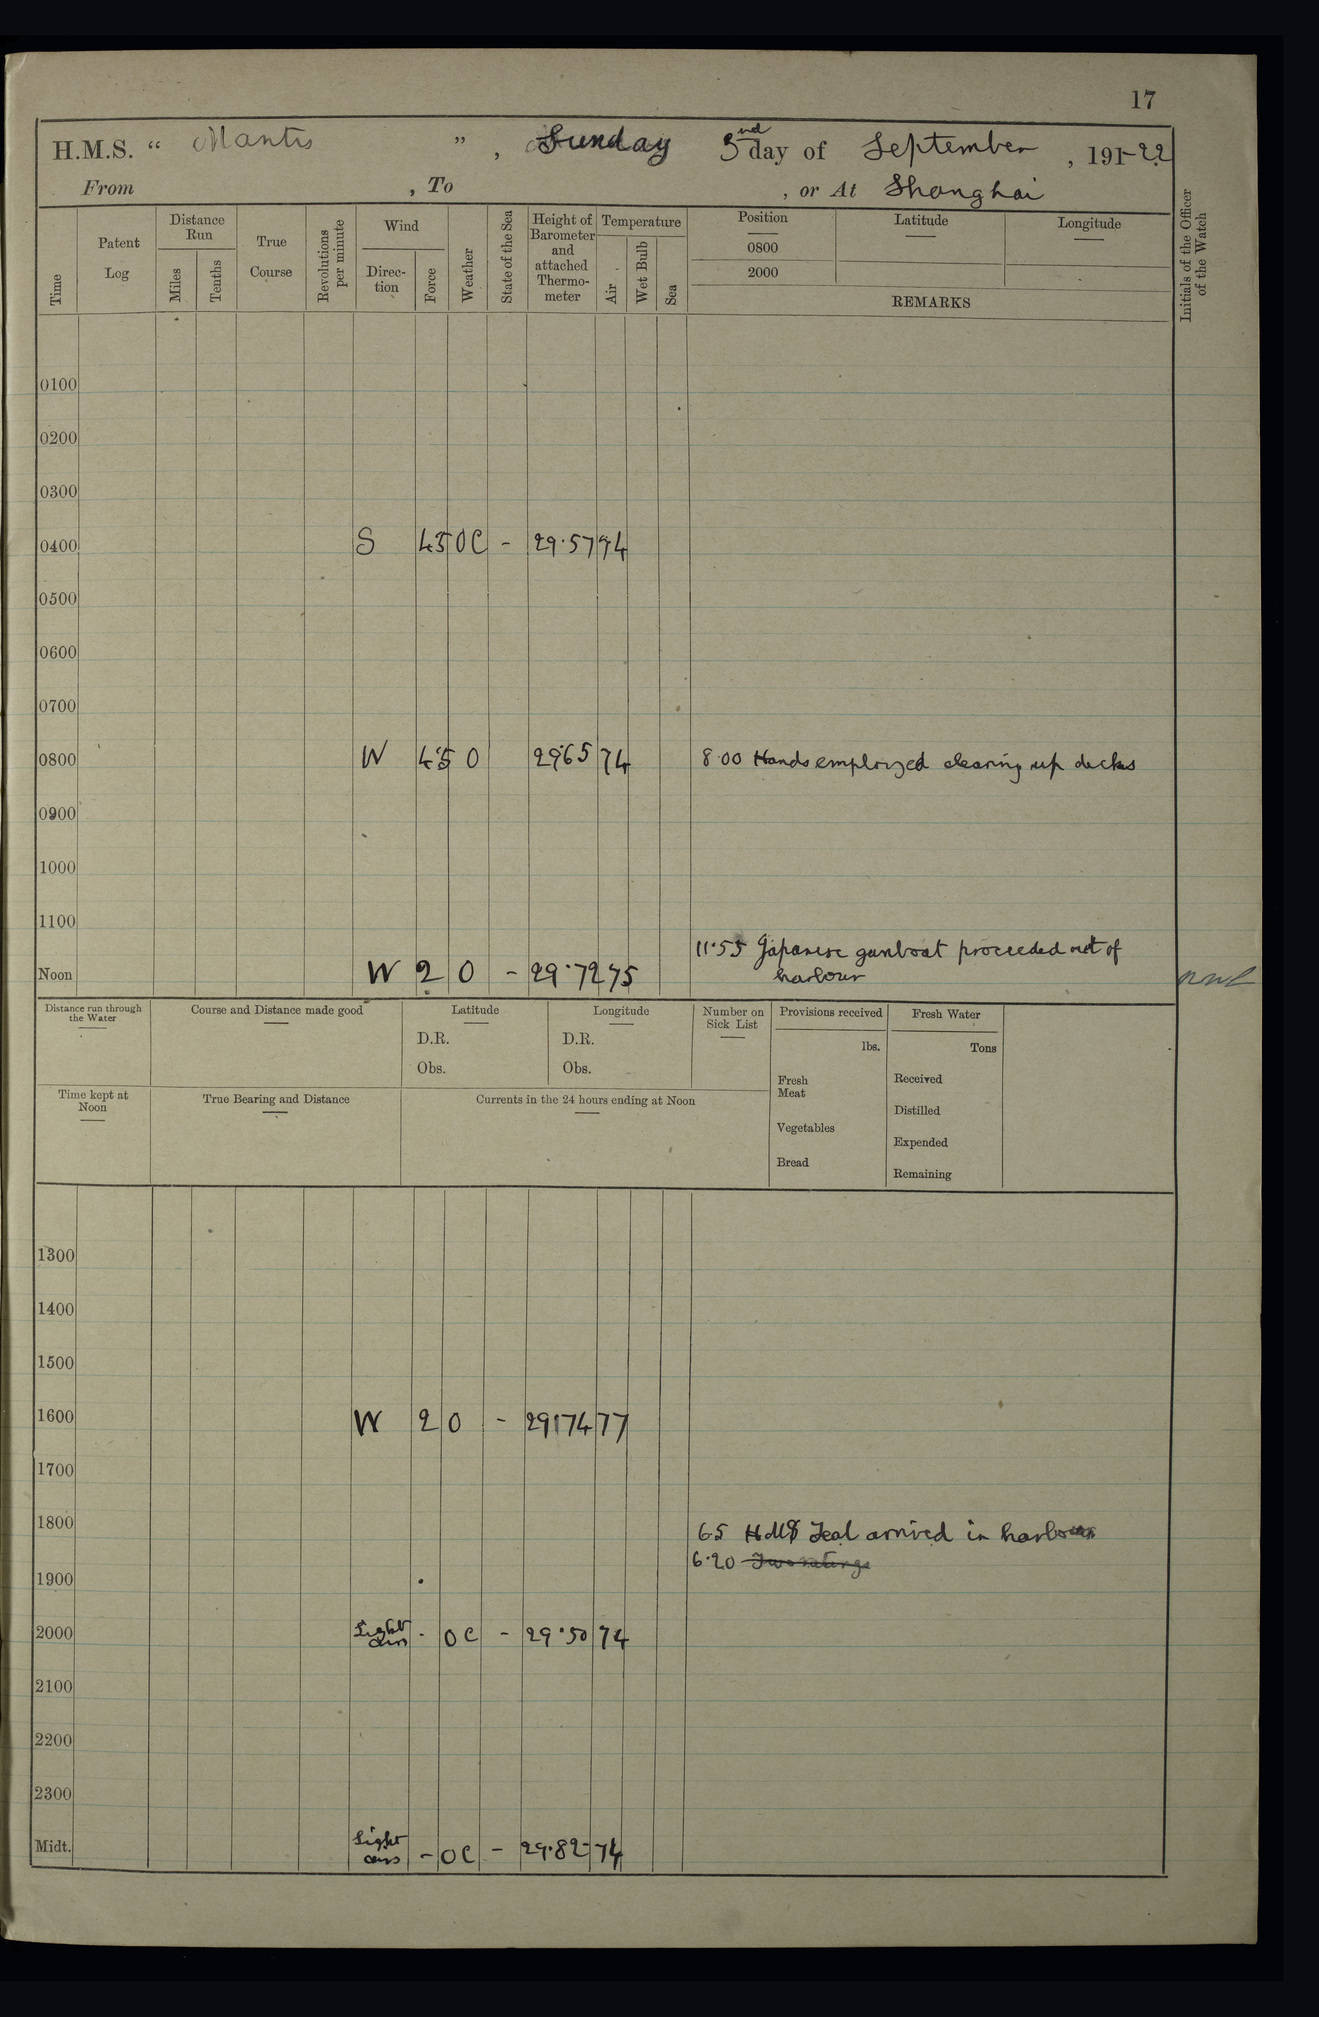 17
H.M.S. “ Mantis ” , Sunday 3nd day of September , 191-22
From , To , or At Shanghai
Time
Patent Log
Distance Run
Miles
Tenths
True Course
Revolutions per minute
Wind
Direc- tion
Force
Weather
State of the Sea
Height of Barometer and attached Thermo- meter
Temperature
Air
Wet Bulb
Sea
Position
0800
2000
Latitude
Longitude
REMARKS
Initials of the Officer of the Watch
0100
0200
0300
0400 S 45 OC - 29.57 74
0500
0600
0700
0800 W 45 O 29.65 74 8.00 Hands employed clearing up decks
0900
1000
1100
11.55 Japanese gunboat proceeded out of
Noon W 2 O - 29.72 75 harbour
Distance run through the Water
Course and Distance made good
Latitude
D.R.
Obs.
Longitude
D.R.
Obs.
Number on Sick List
Provisions received
lbs.
Fresh Meat
Vegetables
Bread
Fresh Water
Tons
Received
Distilled
Expended
Remaining
Time kept at Noon
True Bearing and Distance
Currents in the 24 hours ending at Noon
1300
1400
1500
1600 W 2 O - 29.74 77
1700
1800 6.5 HMS Teal arrived in harbour
6.20 Two ratings
1900
2000 Light airs - OC - 29.50 74
2100
2200
2300
Midt. Light airs - OC - 29.82 74